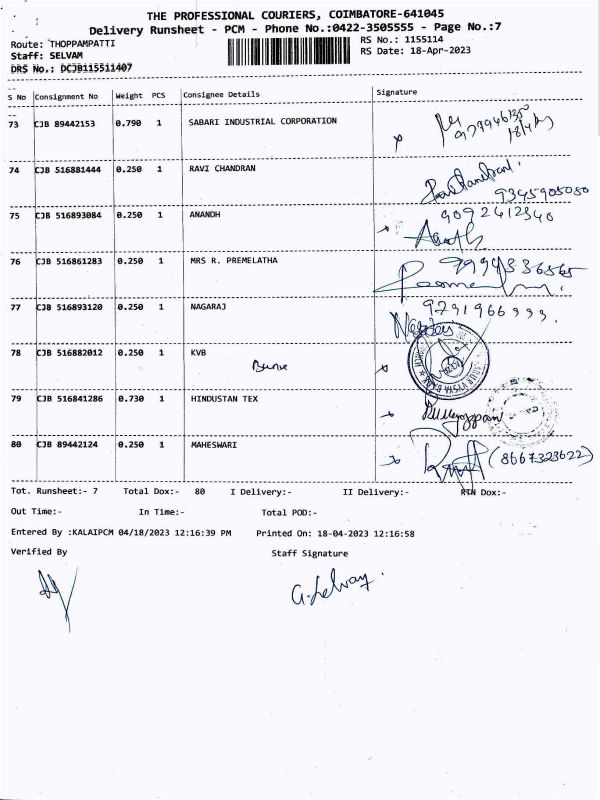 THE PROFESSIONAL COURIERS, COIMBATORE-641045
Delivery Runsheet - PCM - Phone No.:0422-3505555 - Page No.:7
Route: THOPPAMPATTI
RS No.: 1155114
Staff: SELVAM
RS Date: 18-Apr-2023
DRS No.: DCJB115511407
S No Consignment No Weight PCS Consignee Details Signature
73 CJB 89442153 0.790 1 SABARI INDUSTRIAL CORPORATION
74 CJB 516881444 0.250 1 RAVI CHANDRAN
9345905050
75 CJB 516893084 0.250 1 ANANDH
9092412340
76 CJB 516861283 0.250 1 MRS R. PREMELATHA
77 CJB 516893120 0.250 1 NAGARAJ
9791966999.
78 CJB 516882012 0.250 1 KVB
79 CJB 516841286 0.730 1 HINDUSTAN TEX
80 CJB 89442124 0.250 1 MAHESWARI
(8667323622)
Tot. Runsheet:- 7 Total Dox:- 80 I Delivery:- II Delivery:- RTN Dox:-
Out Time:- In Time:- Total POD:-
Entered By :KALAIPCM 04/18/2023 12:16:39 PM Printed On: 18-04-2023 12:16:58
Verified By Staff Signature
G.Selvam.